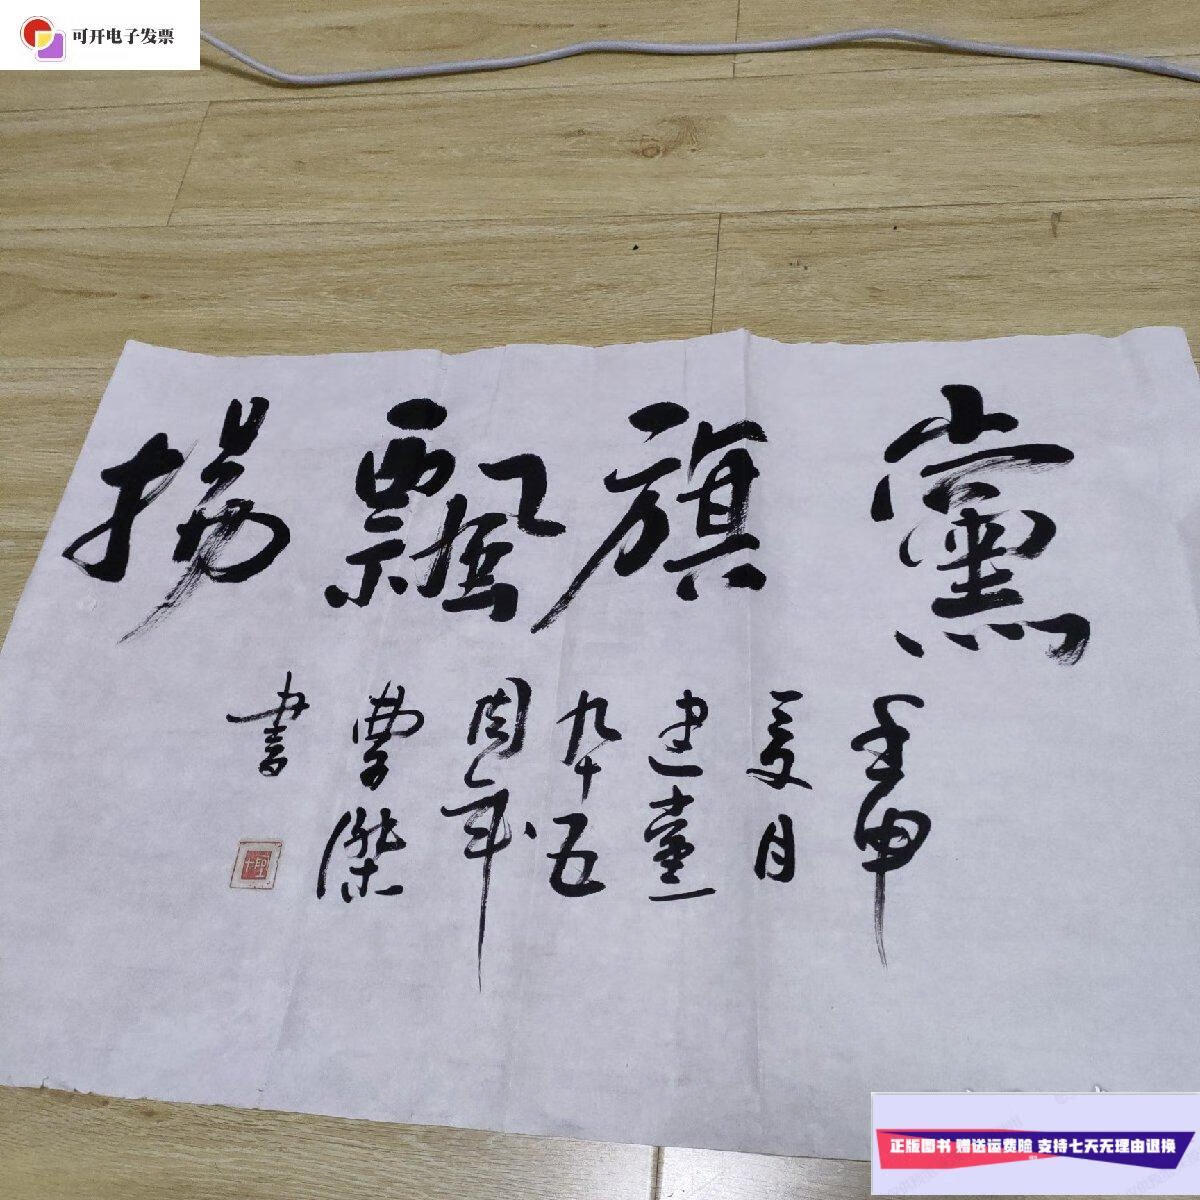 可开电子发票
黨旗飄揚
壬申
夏月
建黨
九十五
周年
學傑
書
正版图书 赠送运费险 支持七天无理由退换